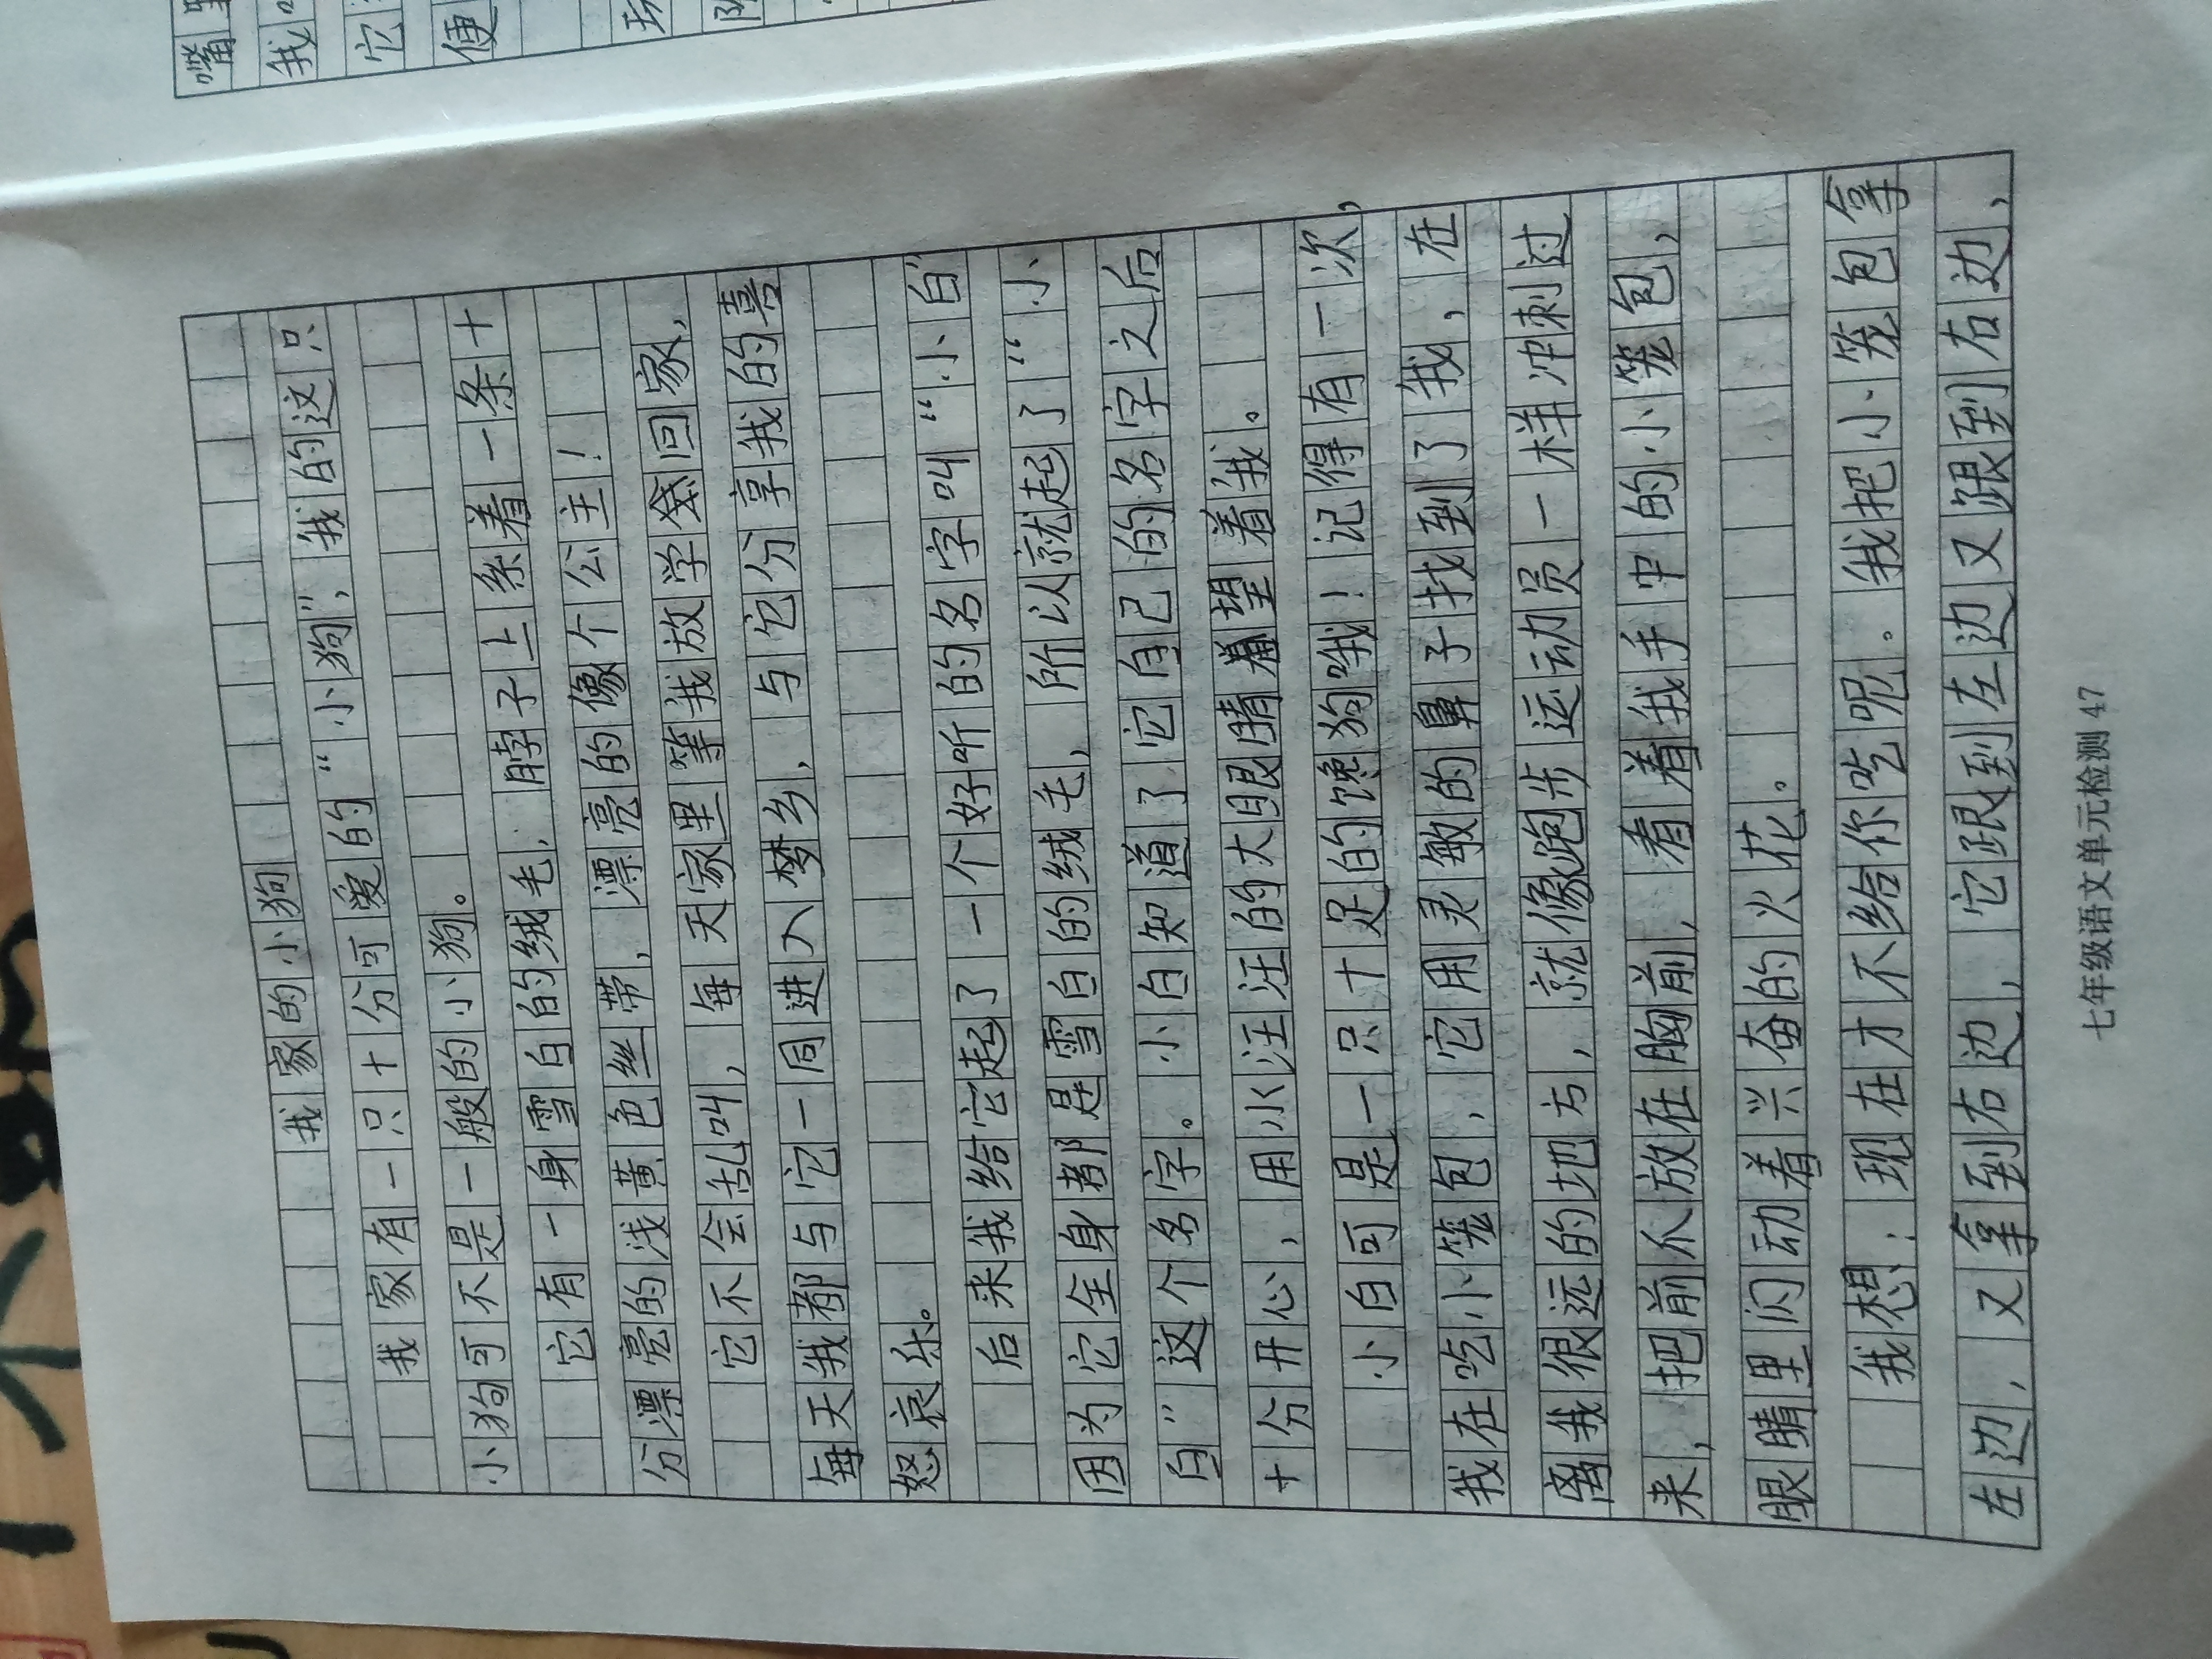 我家的小狗
我家有一只十分可爱的“小狗”，我的这只
小狗可不是一般的小狗。
它有一身雪白的绒毛，脖子上系着一条十
分漂亮的浅黄色丝带，漂亮的像个公主！
它不会乱叫，每天家里等我放学回家，
每天我都与它一同进入梦乡，与它分享我的喜
怒哀乐。
后来我给它起了一个好听的名字叫“小白”
因为它全身都是雪白的绒毛，所以就起了“小
白”这个名字。小白知道了它自己的名字之后
十分开心，用水汪汪的大眼睛望着我。
小白可是一只十足的馋狗哦！记得有一次，
我在吃小笼包，它用灵敏的鼻子找到了我，在
离我很远的地方，就像跑步运动员一样冲刺过
来，把前爪放在胸前，看着我手中的小笼包，
眼睛里闪动着兴奋的火花。
我想：现在才不给你吃呢。我把小笼包拿
到右边，它跟到左边又跟到右边，
左边，又拿
七年级语文单元检测 47
嘴
我
它
便